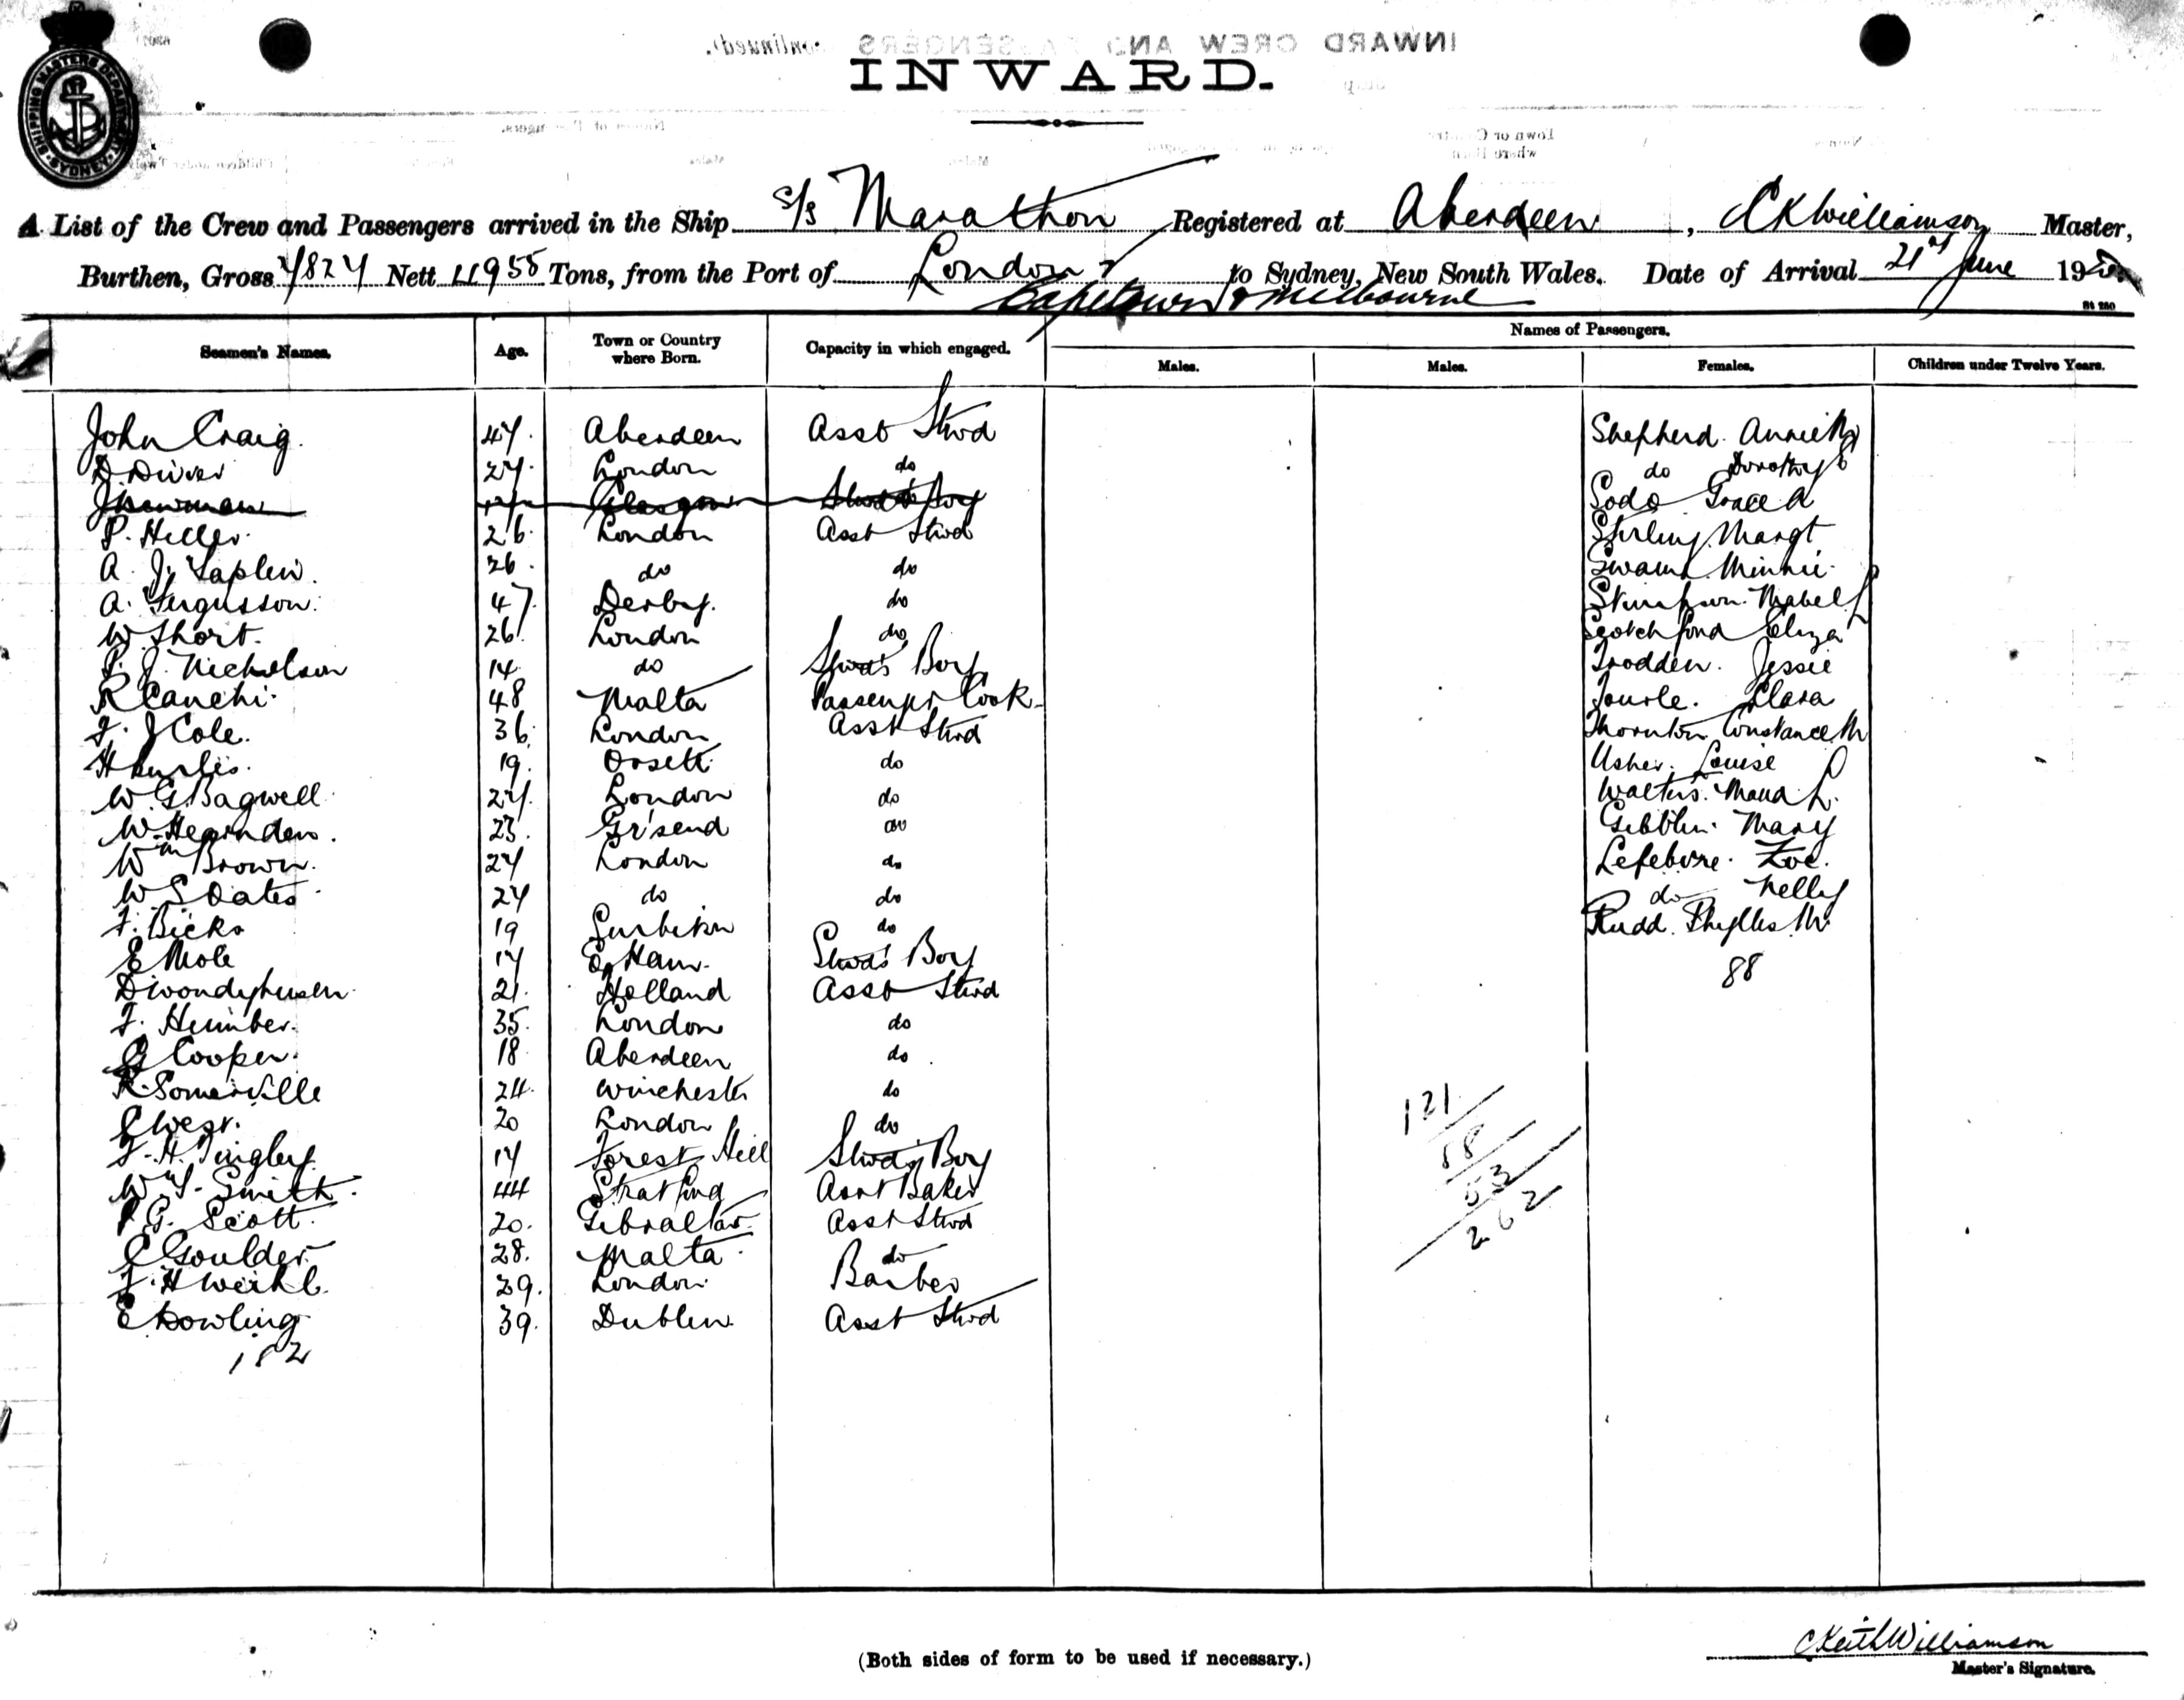 SHIPPING MASTERS DEPARTMENT SYDNEY
INWARD CREW AND PASSENGERS (continued).
INWARD.
A List of the Crew and Passengers arrived in the Ship s/s Marathon Registered at Aberdeen, C K Williamson Master,
Burthen, Gross 7827 Nett Tons, from the Port of London, to Sydney, New South Wales. Date of Arrival 21st June 19
Capetown & Melbourne
St 280
Names of Passengers.
Seamen's Names. Age. Town or Country where Born. Capacity in which engaged. Males. Males. Females. Children under Twelve Years.
John Craig. 47. Aberdeen Asst Stwd Shepherd. Annie
D. Driver 27. London do do Dorothy
J Newman 17 Glasgow Stwd's Boy Grace A
P. Heller. 26. London Asst Stwd Stirling. Margt
A. J. Taplin. 26. do do Swann. Minnie.
A. Fergusson. 47. Derby. do Stimpson. Mabel
W. Short. 26. London do Scotchford Eliza
P. J. Nicholson 14 do Stwd's Boy Trodden. Jessie
R Canchi. 48 Malta Passengr Cook Tourle. Clara
F. J Cole. 36. London Asst Stwd Thornton Constance. M
H Curtis. 19. Orsett. do Usher. Louise
W. G. Bagwell 27. London do Walters. Maud L.
W. Hearnden. 23. Gr'send do Gibblin. Mary
Wm Brown. 27 London do Lefebvre. Zoe.
W S Oates 27 do do do Nelly
F. Bicks 19 Surbiton do Rudd. Phyllis M.
E Mole 17 E. Ham. Stwd's Boy
88
21. Holland Asst Stwd
F. Humber. 35. London do
G Cooper. 18 Aberdeen do
R. Somerville 24. Winchester do
121
E West. 20 London do
F. H. Tingley. 17 Forest Hill Stwd's Boy
88
Wm J. Smith. 44 Stratford Asst Baker
53
P G. Scott. 20. Gibraltar Asst Stwd
262
C Goulder. 28. Malta. do
F. H Weikl. 29. London. Barber
E Dowling 39. Dublin. Asst Stwd
182
(Both sides of form to be used if necessary.)
C Keith Williamson
Master's Signature.